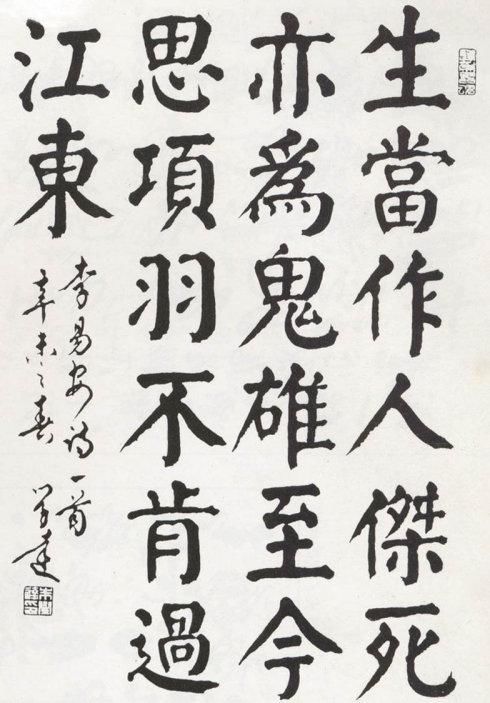 生當作人傑死
亦爲鬼雄至今
思項羽不肯過
江東
李易安詩一首
辛未之春 學達